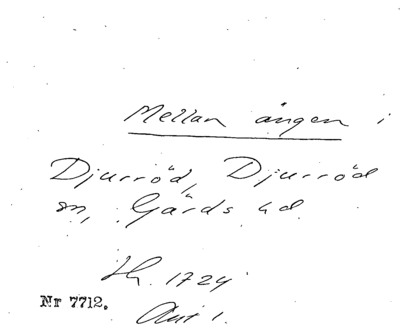 Mellan ängen i
Djurröd, Djurröd
sn, Gärds hd
1724
Nr 7712.
Akt 1.